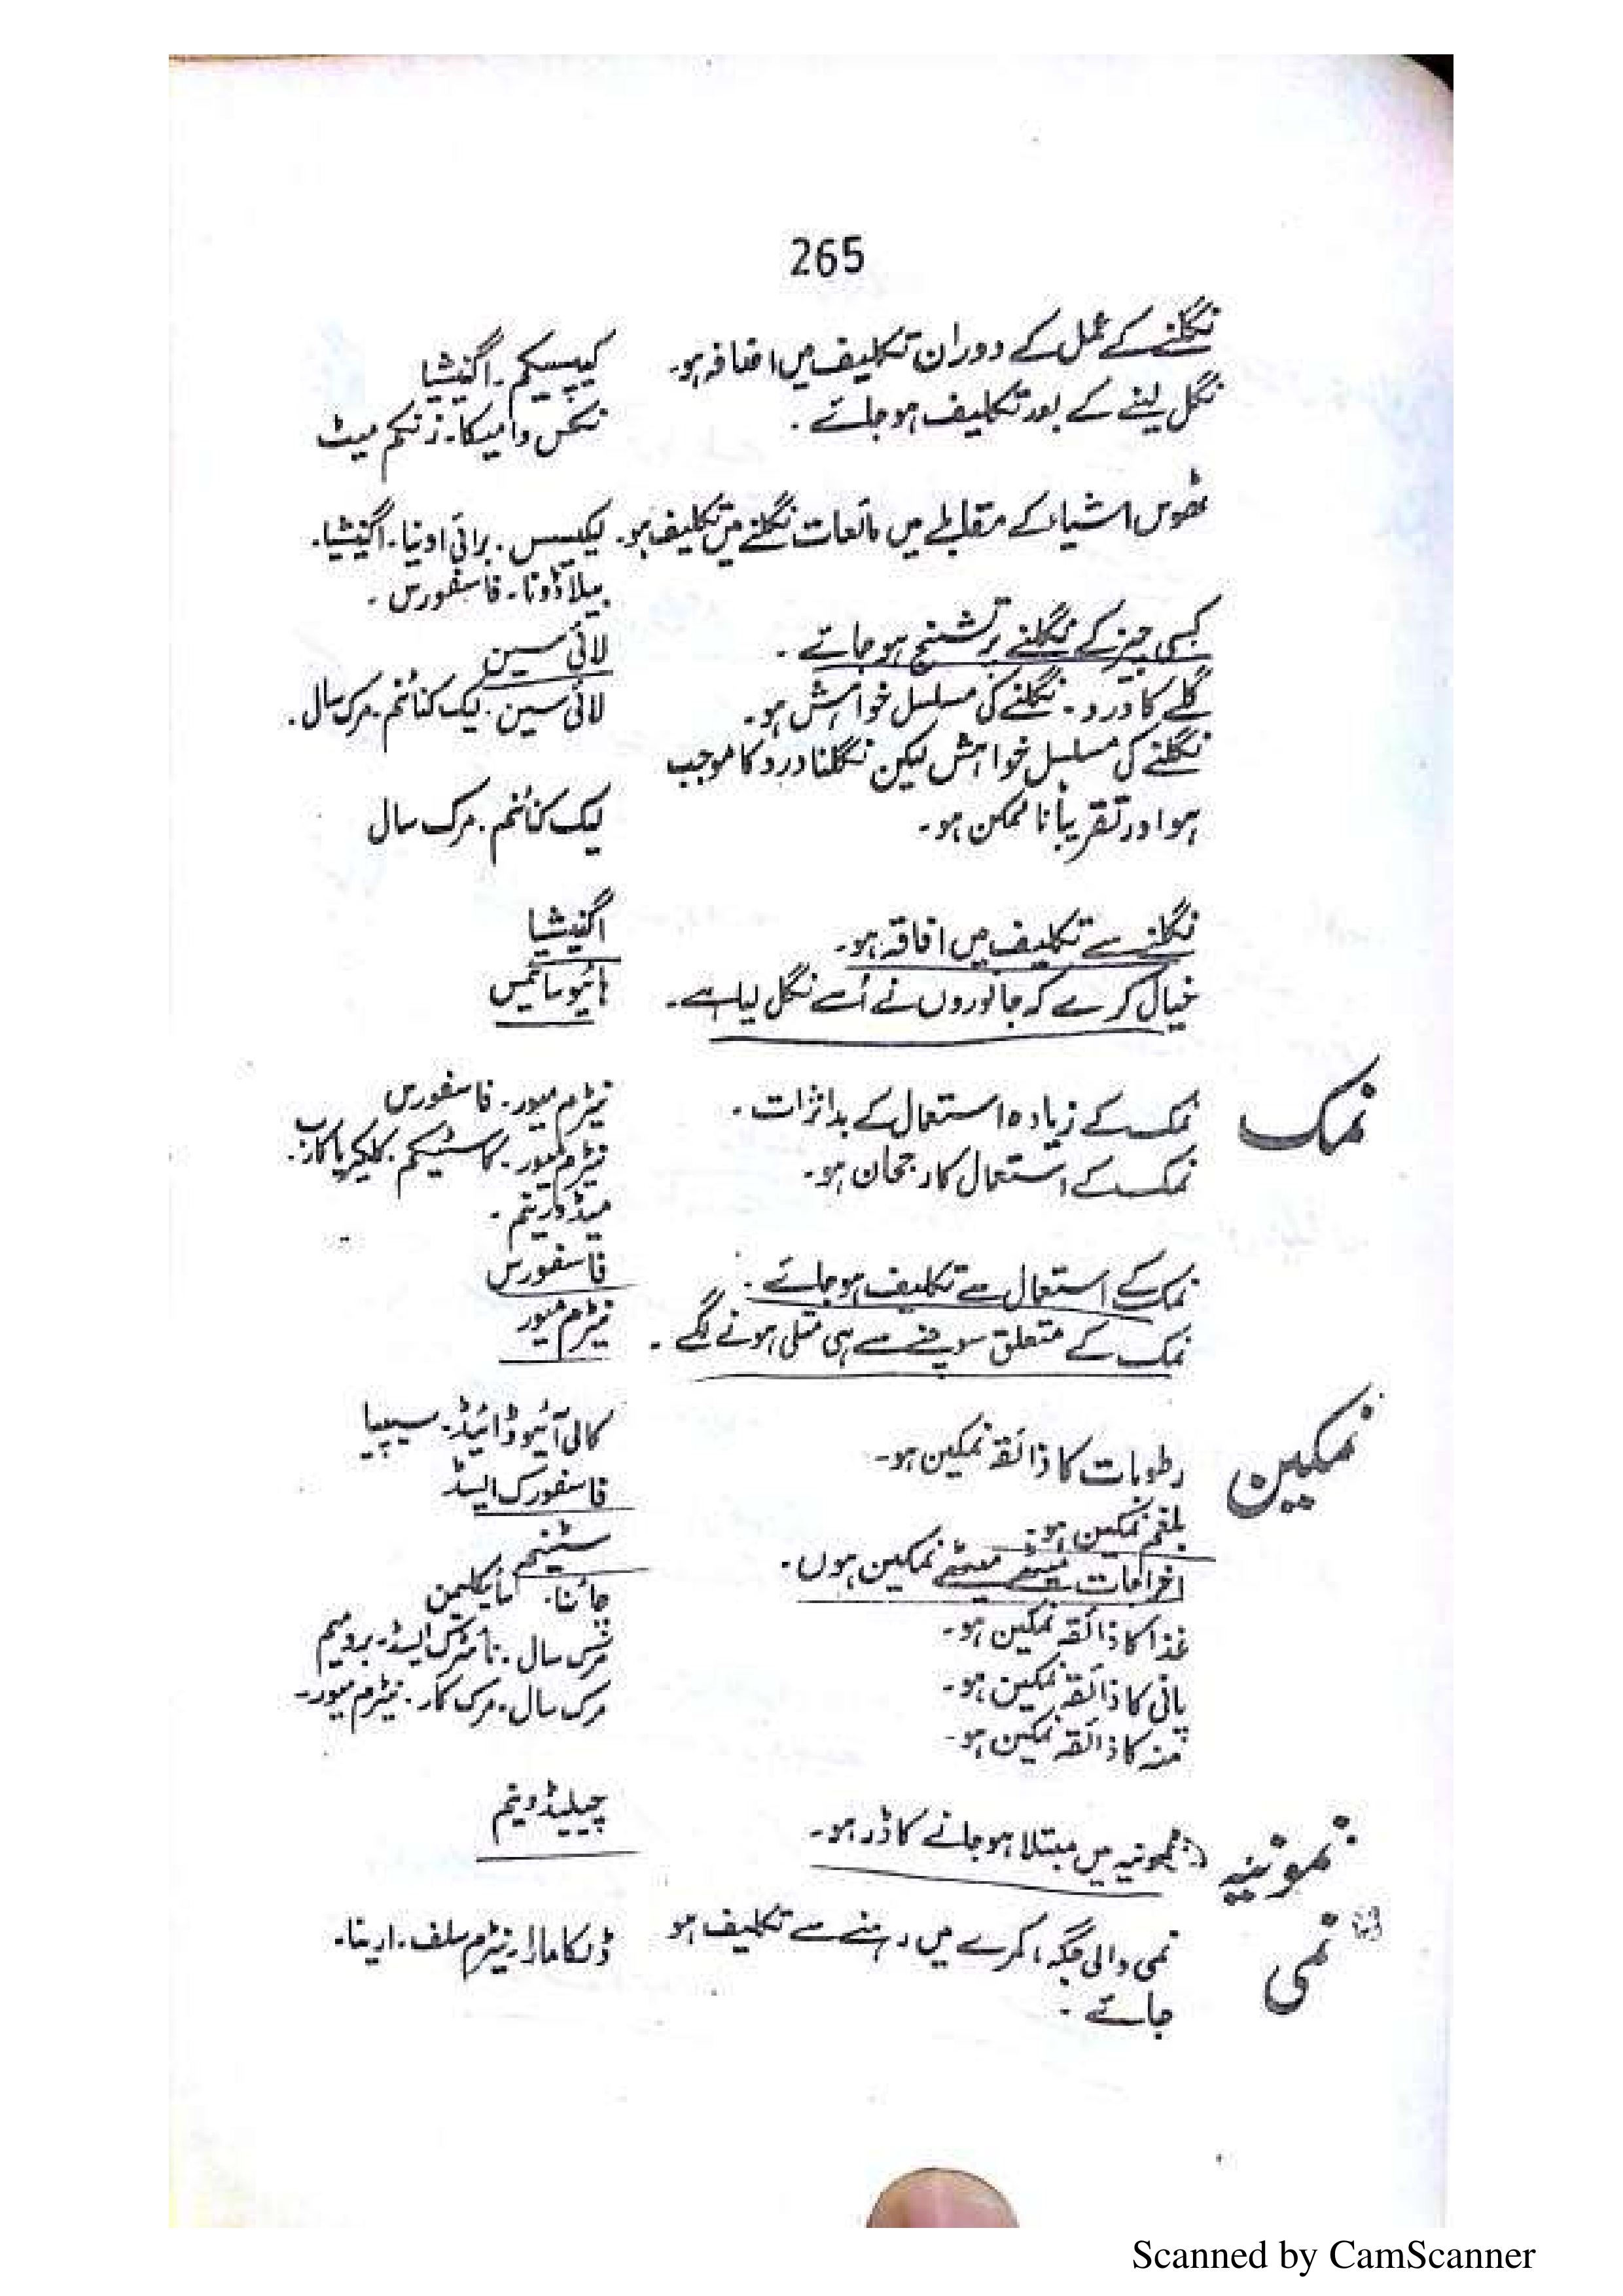 265
نگلنے کے عمل کے دوران تکلیف میں اضافہ ہو۔ کیپسیکم۔ اگنیشیا
نگل لینے کے بعد تکلیف ہو جائے۔ نکس وامیکا۔ زنکم میٹ
ٹھوس اشیاء کے مقابلے میں مائعات نگلنے میں تکلیف ہو۔ لیکیسس۔ برائی اونیا۔ اگنیشیا۔
بیلاڈونا۔ فاسفورس۔
کسی چیز کے نگلنے پر تشنج ہو جائے۔ لائی سین
گلے کا درد۔ نگلنے کی مسلسل خواہش ہو۔ لائی سین۔ لیک کنائنم۔ مرک سال۔
نگلنے کی مسلسل خواہش لیکن نگلنا درد کا موجب
ہو اور تقریباً ناممکن ہو۔ لیک کنائنم۔ مرک سال
نگلنے سے تکلیف میں افاقہ ہو۔ اگنیشیا
خیال کرے کہ جانوروں نے اُسے نگل لیا ہے۔ ہائیوسائمس
نمک
نمک کے زیادہ استعمال کے بداثرات۔ نیٹرم میور۔ فاسفورس
نمک کے استعمال کا رجحان ہو۔ نیٹرم میور۔ کاسٹیکم۔ کلکیریا کارب۔
میڈورینم۔
نمک کے استعمال سے تکلیف ہو جائے۔ فاسفورس
نمک کے متعلق سوچنے سے ہی متلی ہونے لگے۔ نیٹرم میور
نمکین
رطوبات کا ذائقہ نمکین ہو۔ کالی آئیوڈائیڈ۔ سیپیا
بلغم نمکین ہو۔ فاسفورک ایسڈ
اخراجات میٹھے میٹھے نمکین ہوں۔ سٹینم
غذا کا ذائقہ نمکین ہو۔ چائنا۔ سائیکلیمن
پانی کا ذائقہ نمکین ہو۔ سال۔ نائٹرک ایسڈ۔ برومیم
منہ کا ذائقہ نمکین ہو۔ مرک سال۔ مرک کار۔ نیٹرم میور۔
نمونیہ
نمونیہ میں مبتلا ہو جانے کا ڈر ہو۔ چیلیڈونیم
نمی
نمی والی جگہ، کمرے میں رہنے سے تکلیف ہو ڈلکامارا۔ نیٹرم سلف۔ ارینا۔
جائے۔
Scanned by CamScanner